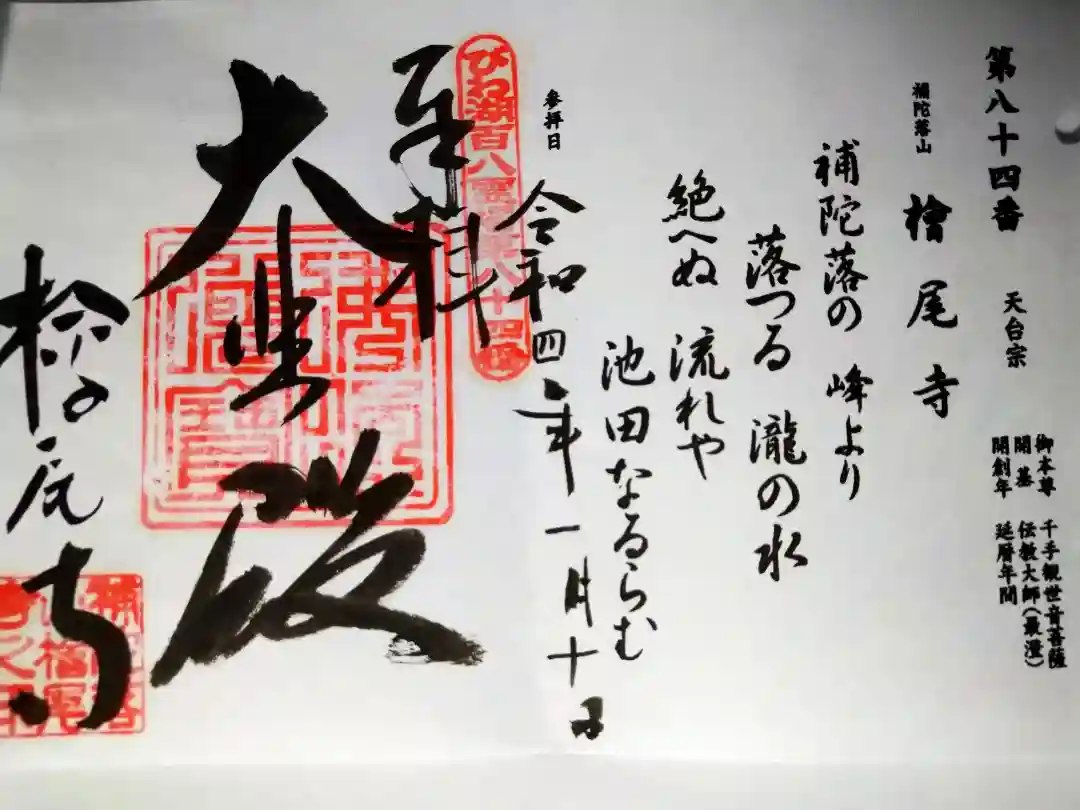 第八十四番 天台宗
御本尊 千手観世音菩薩
開基 伝教大師(最澄)
開創年 延暦年間
補陀落山 檜尾寺
補陀落の 峰より
落つる 瀧の水
絶へぬ 流れや
池田なるらむ
参拝日 令和四年一月十日
びわ湖百八霊場第八十四番
奉拝
大悲殿
檜尾寺